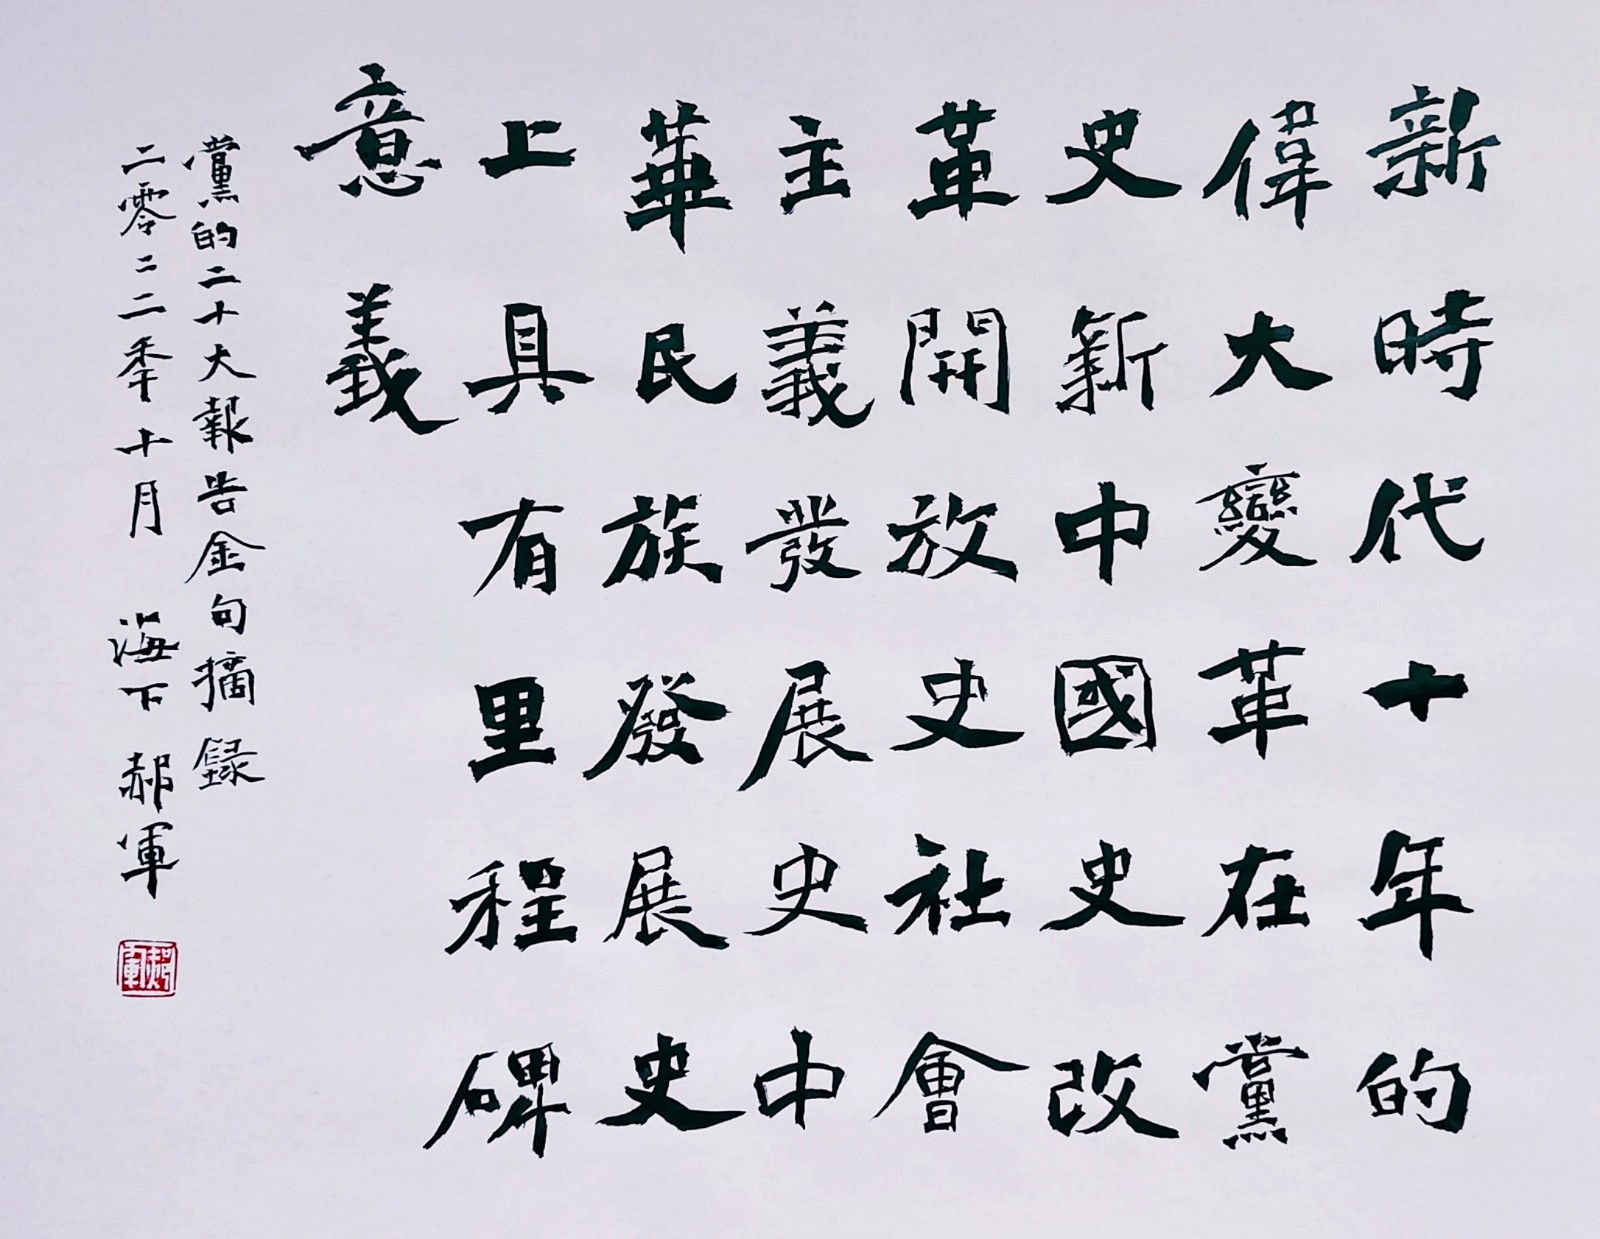 新時代十年的
偉大變革在黨
史新中國史改
革開放史社會
主義發展史中
華民族發展史
上具有里程碑
意義
黨的二十大報告金句摘録
二零二二年十月 海下郝軍
郝軍